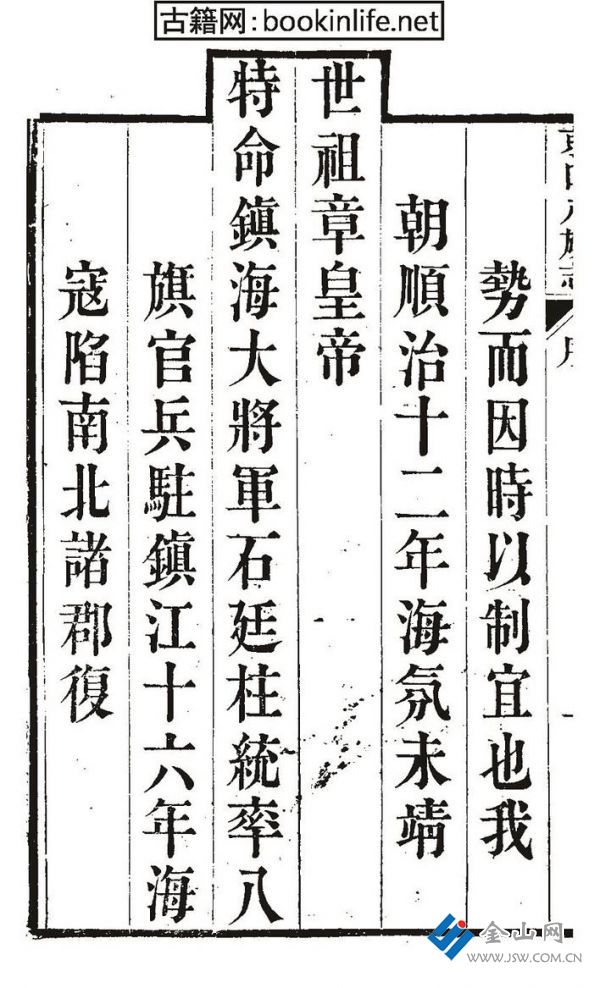 古籍网:bookinlife.net
勢而因時以制宜也我
朝順治十二年海氛未靖
世祖章皇帝
特命鎮海大將軍石廷柱統率八
旗官兵駐鎮江十六年海
寇陷南北諸郡復
金山网
WWW.JSW.COM.CN